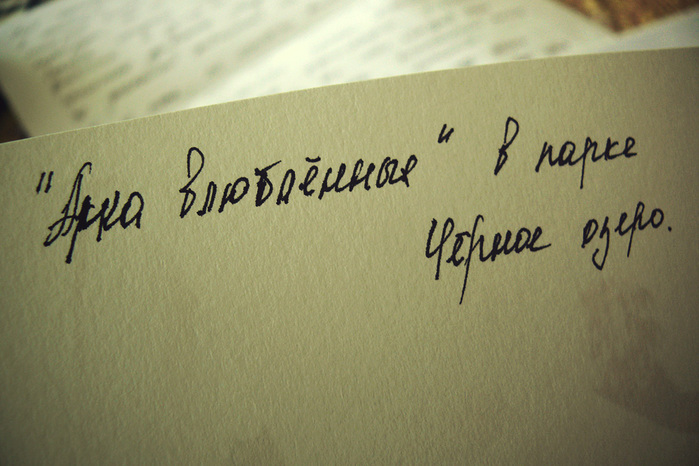 "Арка влюблённые" в парке
Чёрное озеро.